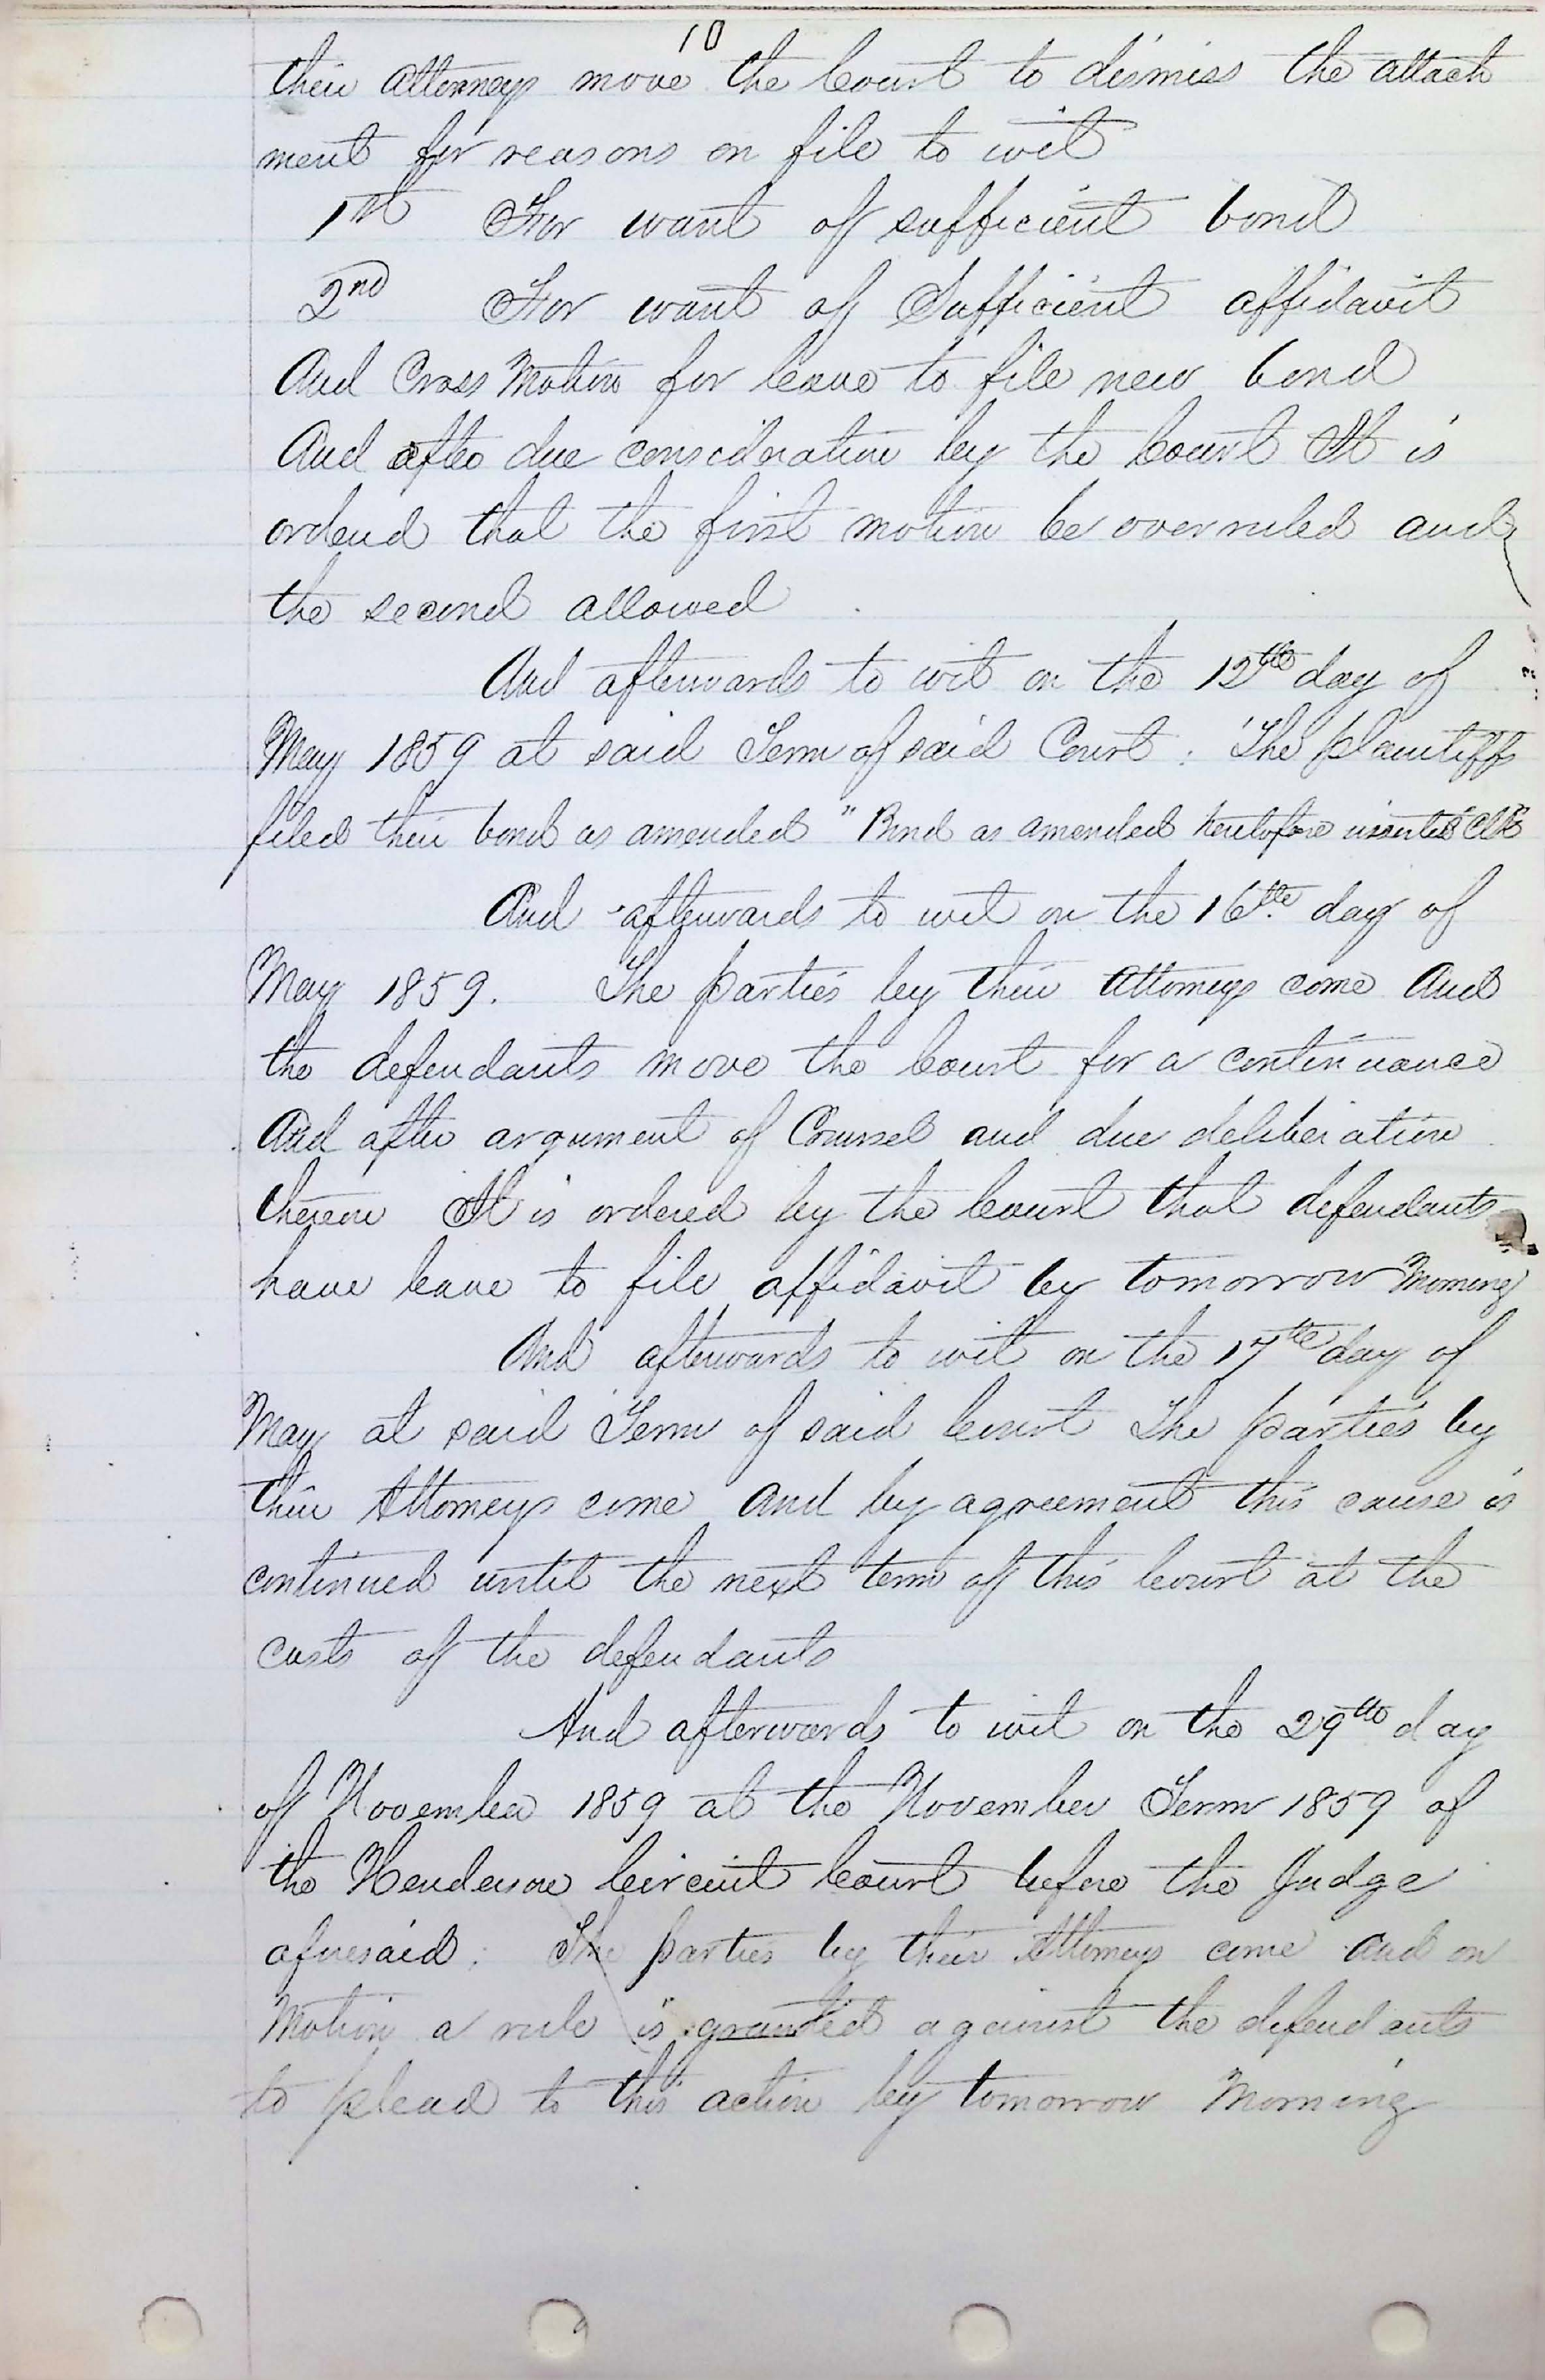 10
their Attorneys move the Court to dismiss the attach
ment for reasons on file to wit
1st For want of sufficient bond
2nd For want of Sufficient affidavit
And Cross Motion for leave to file new bond
And after due consideration by the Court It is
ordered that the first motion be overruled and
the second allowed
And afterwards to wit on the 12th day of
May 1859 at said Term of said Court. The plaintiffs
filed their bond as amended "Bond as amended heretofore inserted Clk"
And afterwards to wit on the 16th day of
May 1859. The parties by their Attorneys come And
the defendants move the Court for a continuance
And after argument of Counsel and due deliberation
thereon It is ordered by the Court that defendants
have leave to file affidavit by tomorrow Morning
And afterwards to wit on the 17th day of
May at said Term of said Court The parties by
their Attorneys come And by agreement this cause is
continued until the next term of this Court at the
costs of the defendants
And afterwards to wit on the 29th day
of November 1859 at the November Term 1859 of
the Henderson Circuit Court before the Judge
aforesaid. The parties by their Attorneys come And on
Motion a rule is granted against the defendants
to plead to this action by tomorrow Morning